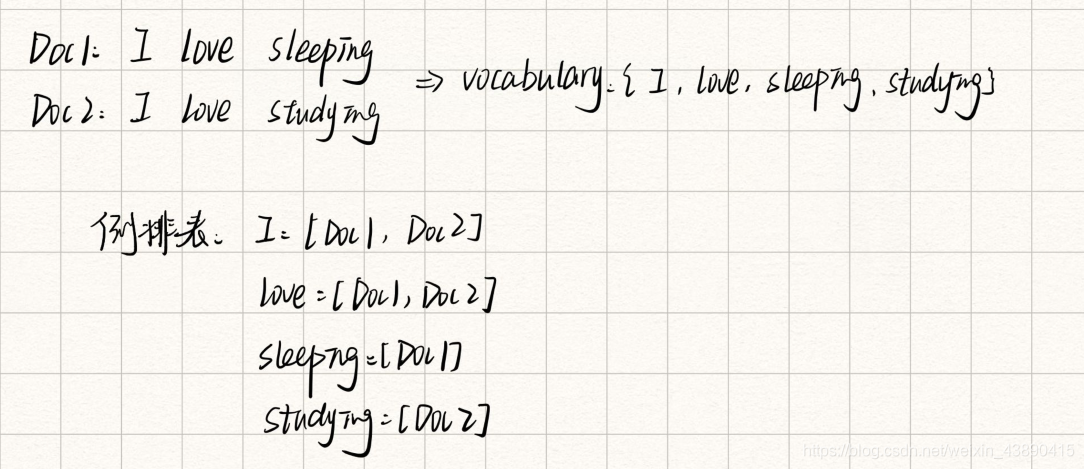 Doc1: I love sleeping
Doc2: I love studying
⇒ vocabulary: { I, love, sleeping, studying}
例排表: I: [Doc1, Doc2]
love = [Doc1, Doc2]
sleeping = [Doc1]
studying = [Doc2]
https://blog.csdn.net/weixin_43890415